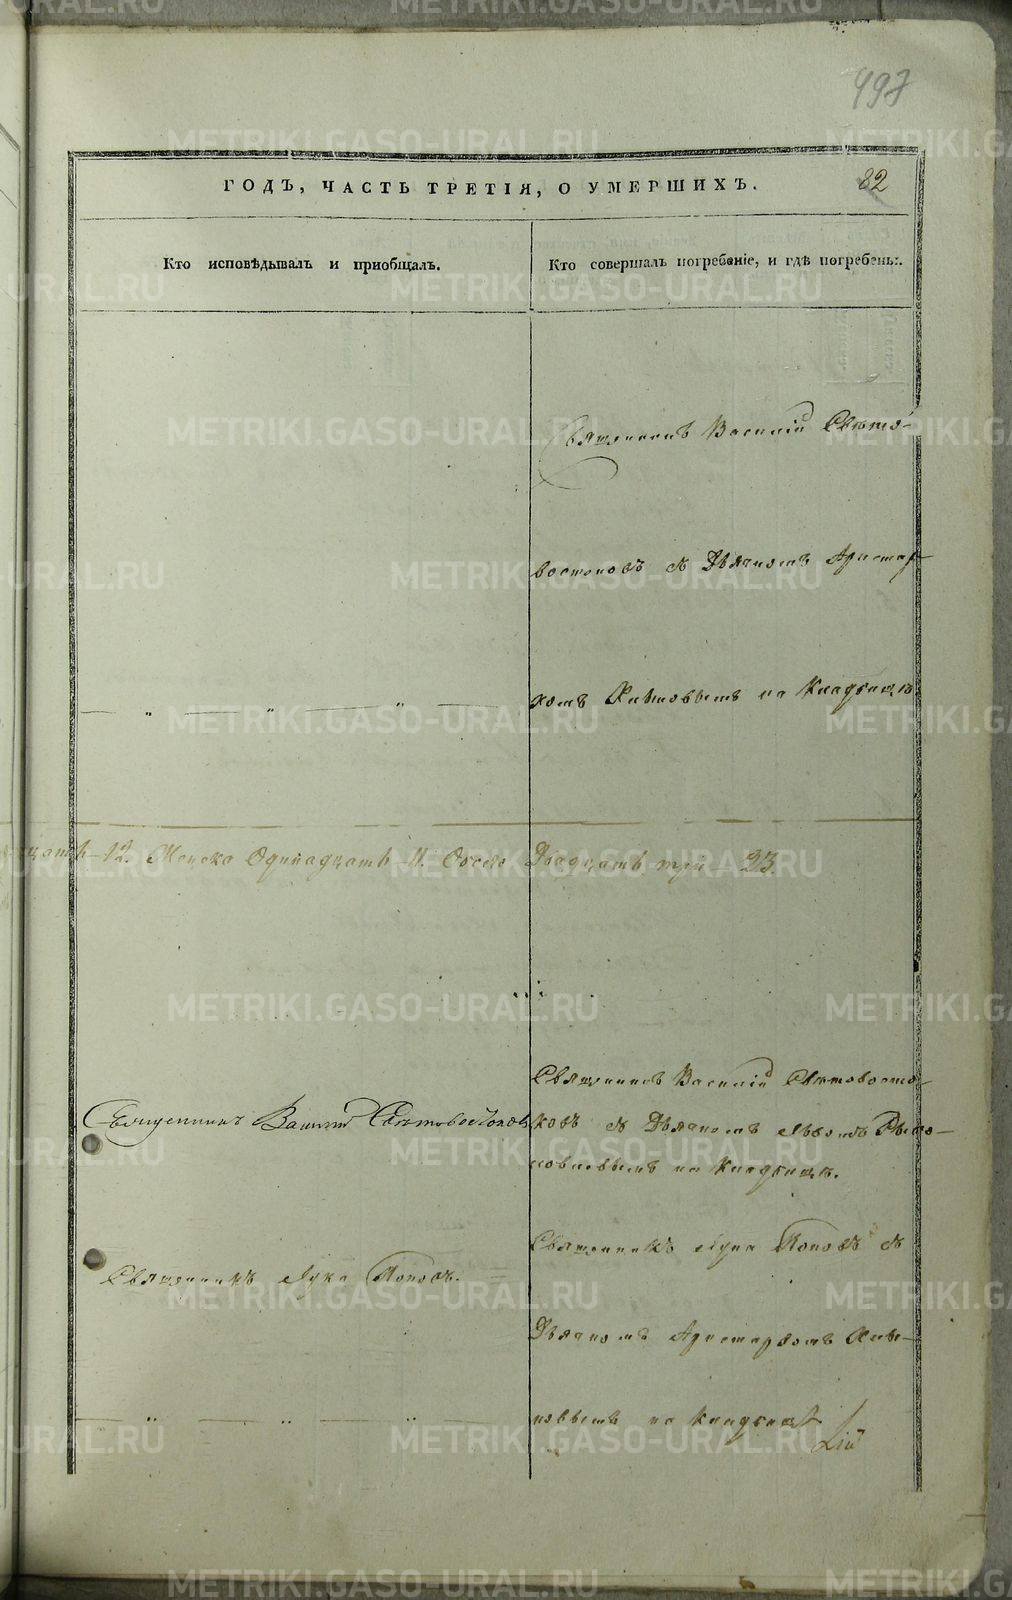 497
ГОДЪ, ЧАСТЬ ТРЕТІЯ, О УМЕРШИХЪ.
82
Кто исповѣдывалъ и пріобщалъ.
Кто совершалъ погребеніе, и гдѣ погребены.
Священникъ Василій Свѣто-
востоковъ съ Дьячкомъ Аристар-
хомъ на Кладбищѣ
12. Женска Одинадцать 11. Обоего Двадцать три 23.
Священникъ Василій Свѣтовостоковъ
Священникъ Василій Свѣтовосто-
ковъ съ Дьячкомъ
на Кладбищѣ.
Священникъ Лука Поповъ.
Священникъ Лука Поповъ съ
Дьячкомъ Аристархомъ
на Кладбищѣ
METRIKI.GASO-URAL.RU